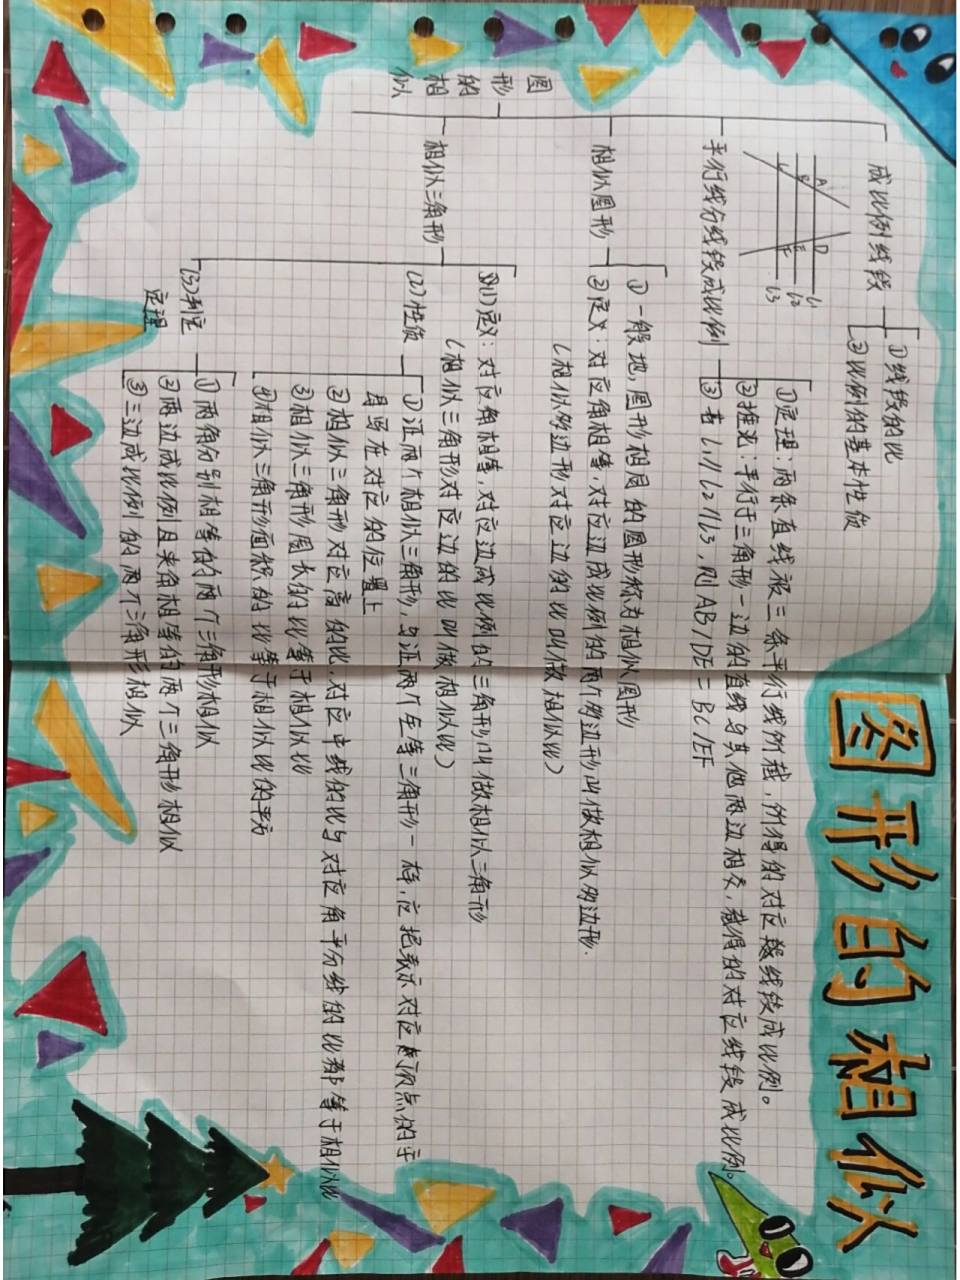 图形的相似
图形的相似
成比例线段
①线段的比
②比例的基本性质
A
D
B
E
C
F
l1
l2
l3
平行线分线段成比例
①定理:两条直线被三条平行线所截,所得的对应线段成比例。
②推论:平行于三角形一边的直线与其他两边相交,截得的对应线段成比例。
③若l1//l2//l3,则AB/DE=BC/EF
相似图形
①一般地,图形相同的图形称为相似图形
②定义:对应角相等,对应边成比例的两个多边形叫做相似多边形.
(相似多边形对应边的比叫做相似比)
相似三角形
(1)定义:对应角相等,对应边成比例的三角形叫做相似三角形
(相似三角形对应边的比叫做相似比)
(2)性质
①证两个相似三角形,与证两个全等三角形一样,应把表示对应顶点的字
母写在对应的位置上
②相似三角形对应高的比,对应中线的比与对应角平分线的比都等于相似比
③相似三角形周长的比等于相似比
④相似三角形面积的比等于相似比的平方
(3)判定
定理
①两角分别相等的两个三角形相似
②两边成比例且夹角相等的两个三角形相似
③三边成比例的两个三角形相似